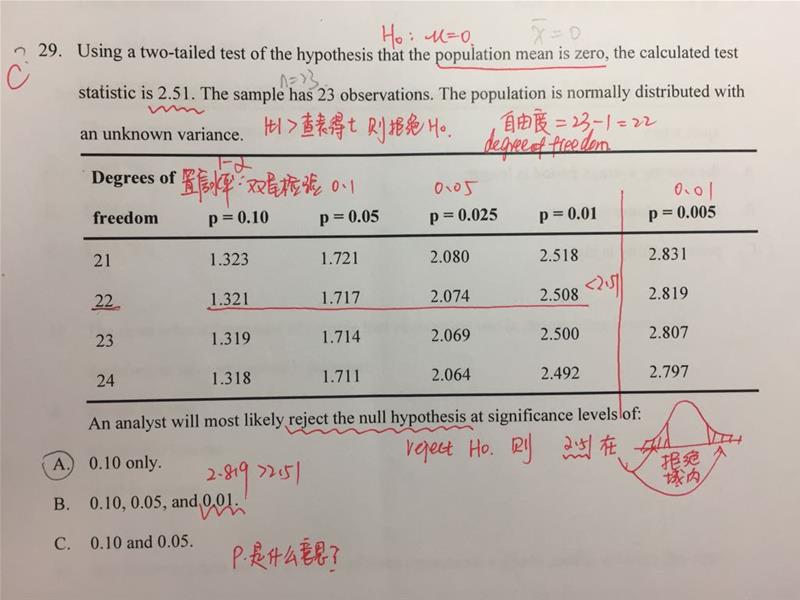 H₀: μ=0. x̄=0
? 29. Using a two-tailed test of the hypothesis that the population mean is zero, the calculated test
C n=23
statistic is 2.51. The sample has 23 observations. The population is normally distributed with
an unknown variance. |t| > 查表得t 则拒绝H₀. 自由度=23-1=22
degree of freedom
1-α
Degrees of 置信率:双尾检验 0.1 0.05 0.01
freedom p = 0.10 p = 0.05 p = 0.025 p = 0.01 p = 0.005
21 1.323 1.721 2.080 2.518 2.831
22 1.321 1.717 2.074 2.508 <2.51 2.819
23 1.319 1.714 2.069 2.500 2.807
24 1.318 1.711 2.064 2.492 2.797
An analyst will most likely reject the null hypothesis at significance levels of:
reject H₀. 则 2.51 在
拒绝
域内
A. 0.10 only.
2.819 >2.51
B. 0.10, 0.05, and 0.01.
C. 0.10 and 0.05.
P.是什么意思?